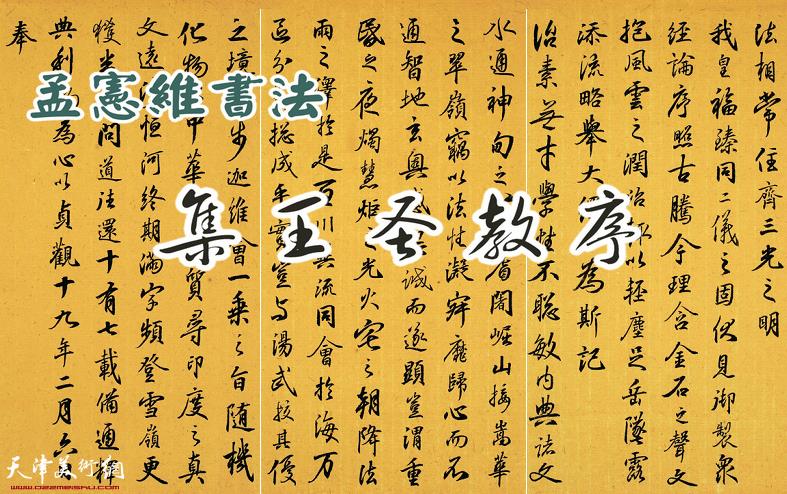 法相常住齊三光之明
我皇福臻同二儀之固伏見御製衆
經論序照古騰今理含金石之聲文
抱風雲之潤治以輕塵足岳墜露
添流略舉大為斯記
治素無才學性不聰敏內典諸文
水通神甸之闍崛山接嵩華
之翠嶺竊以法性凝寂靡歸心而不
通智地玄奧感誠而遂顯豈謂重
昏之夜燭慧炬之光火宅之朝降法
雨之澤於是百川異流同會於海万
區分總成乎實豈与湯武校其優
之境步迦維會一乘之旨隨機
化物中華質尋印度之真
文遠恒河終期滿字頻登雪嶺更
獲半問道法還十有七載備通釋
典利為心以貞觀十九年二月六日
奉
孟憲維書法
集王圣教序
天津美術網
www.022meishu.com